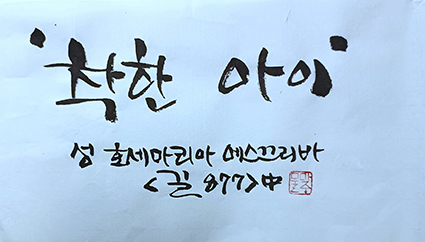 '착한 아이'
성 호세마리아 에스끄리바
<길 877>中